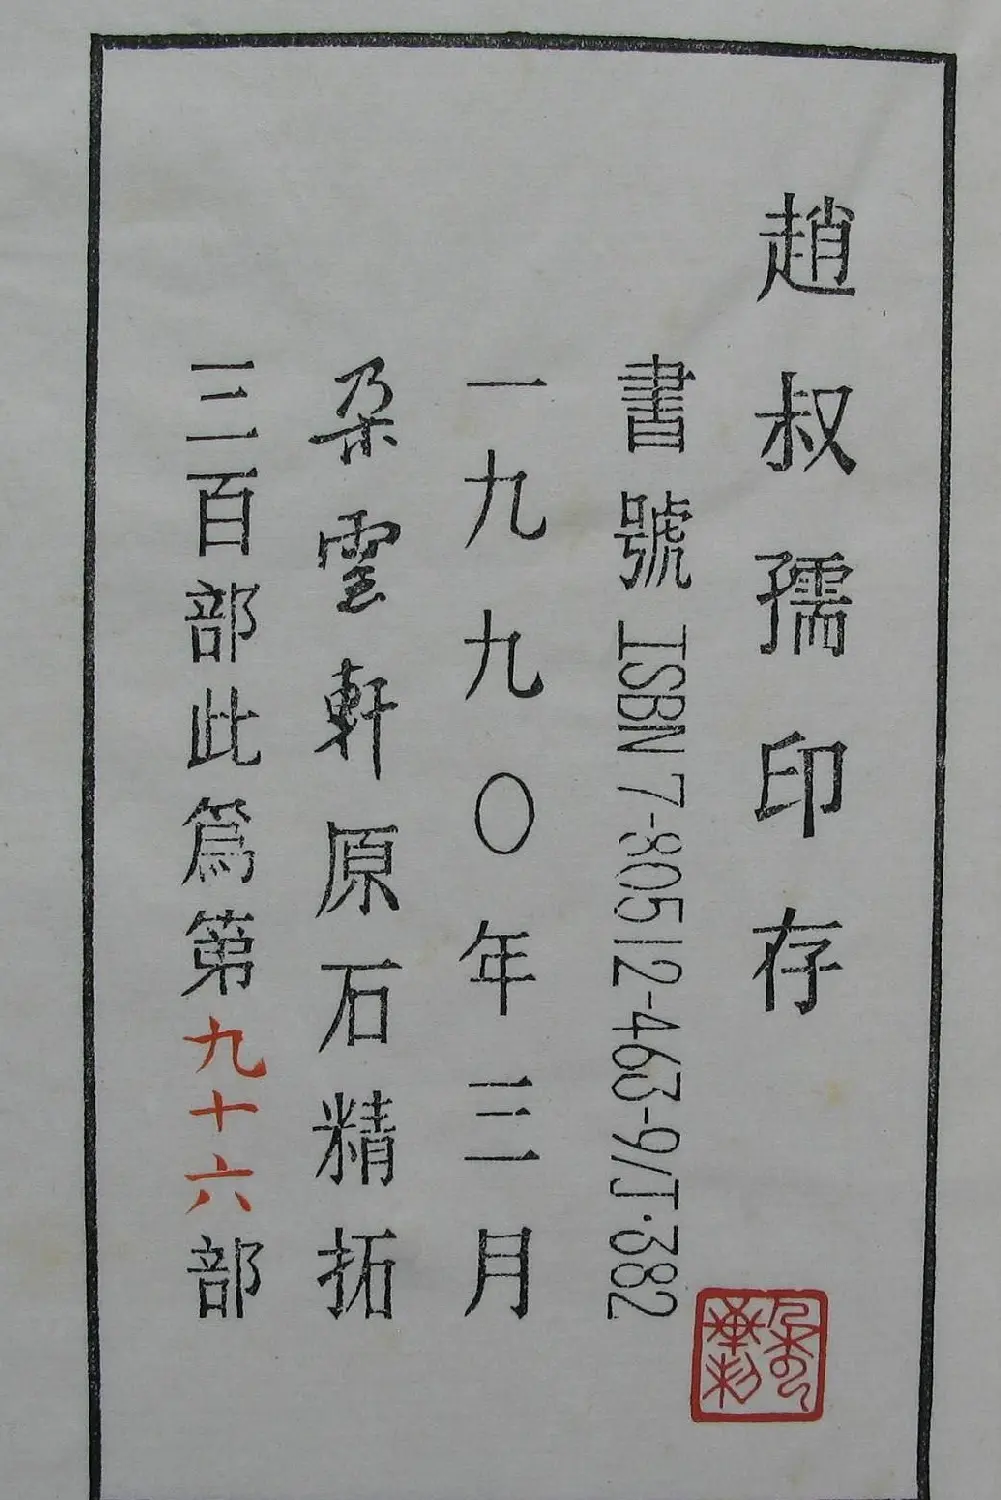 趙叔孺印存
書號 ISBN 7-80512-463-9/J·382
一九九〇年三月
朶雲軒原石精拓
三百部此爲第九十六部